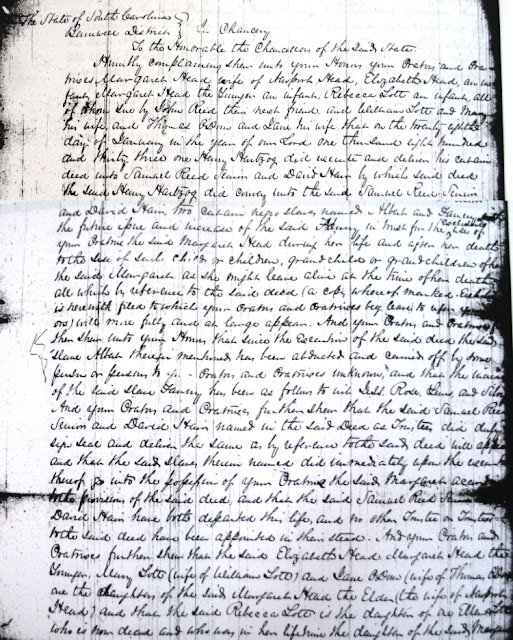 The State of South Carolina
Barnwell District } In Chancery
To the Honorable the Chancellors of the said State
Humbly complaining shew unto your Honors your Orators and Ora-
trixes Margaret Head, wife of Newport Head, Elizabeth Head, an in-
fant, Margaret Head the Younger an infant, Rebecca Lott an infant, all
of whom sue by John Reed their next friend, and William Lott and Mary
his wife, and Thomas ODom and Jane his wife that on the twenty eighth
day of January in the year of our Lord one thousand eight hundred
and thirty three one Henry Hartzog did execute and deliver his certain
deed unto Samuel Reed Senior and David Hair by which said deed
the said Henry Hartzog did convey unto the said Samuel Reed Senior
and David Hair, two certain negro slaves named Albert and Fanny
the future issue and increase of the said Fanny, in trust for the use of
your Oratrix the said Margaret Head during her life and after her death
to the use of such child or children, grandchild or grandchildren of her
the said Margaret as she might leave alive at the time of her death
all which by reference to the said deed (a copy whereof marked
is herewith filed to which your Orators and Oratrixes beg leave to
will more fully and at large appear. And your Orators and Oratrixes
then shew unto your Honors that since the execution of the said deed the said
slave Albert therein mentioned has been abducted and carried off by some
person or persons to yr. Orators and Oratrixes unknown, and that the
of the said slave Fanny has been as follows to wit Rose,
And your Orators and Oratrixes further shew that the said Samuel Reed
Senior and David Hair named in the said Deed as Trustees did duly
sign seal and deliver the same as by reference to the said deed will appear
and that the said slaves therein named did immediately upon the
thereof go into the possession of your Oratrix the said Margaret
to the provisions of the said deed, and that the said Samuel Reed Senior
David Hair have both departed this life, and no other Trustee or Trustees
to the said deed have been appointed in their stead. And your Orators and
Oratrixes further shew that the said Elizabeth Head Margaret Head the
Younger, Mary Lott (wife of William Lott) and Jane ODom (wife of Thomas ODom)
are the daughters of the said Margaret Head the Elder (the wife of Newport
Head) and that the said Rebecca Lott is the daughter of one Ellen Lott
who is now dead and who was in her lifetime the daughter of the said Margaret